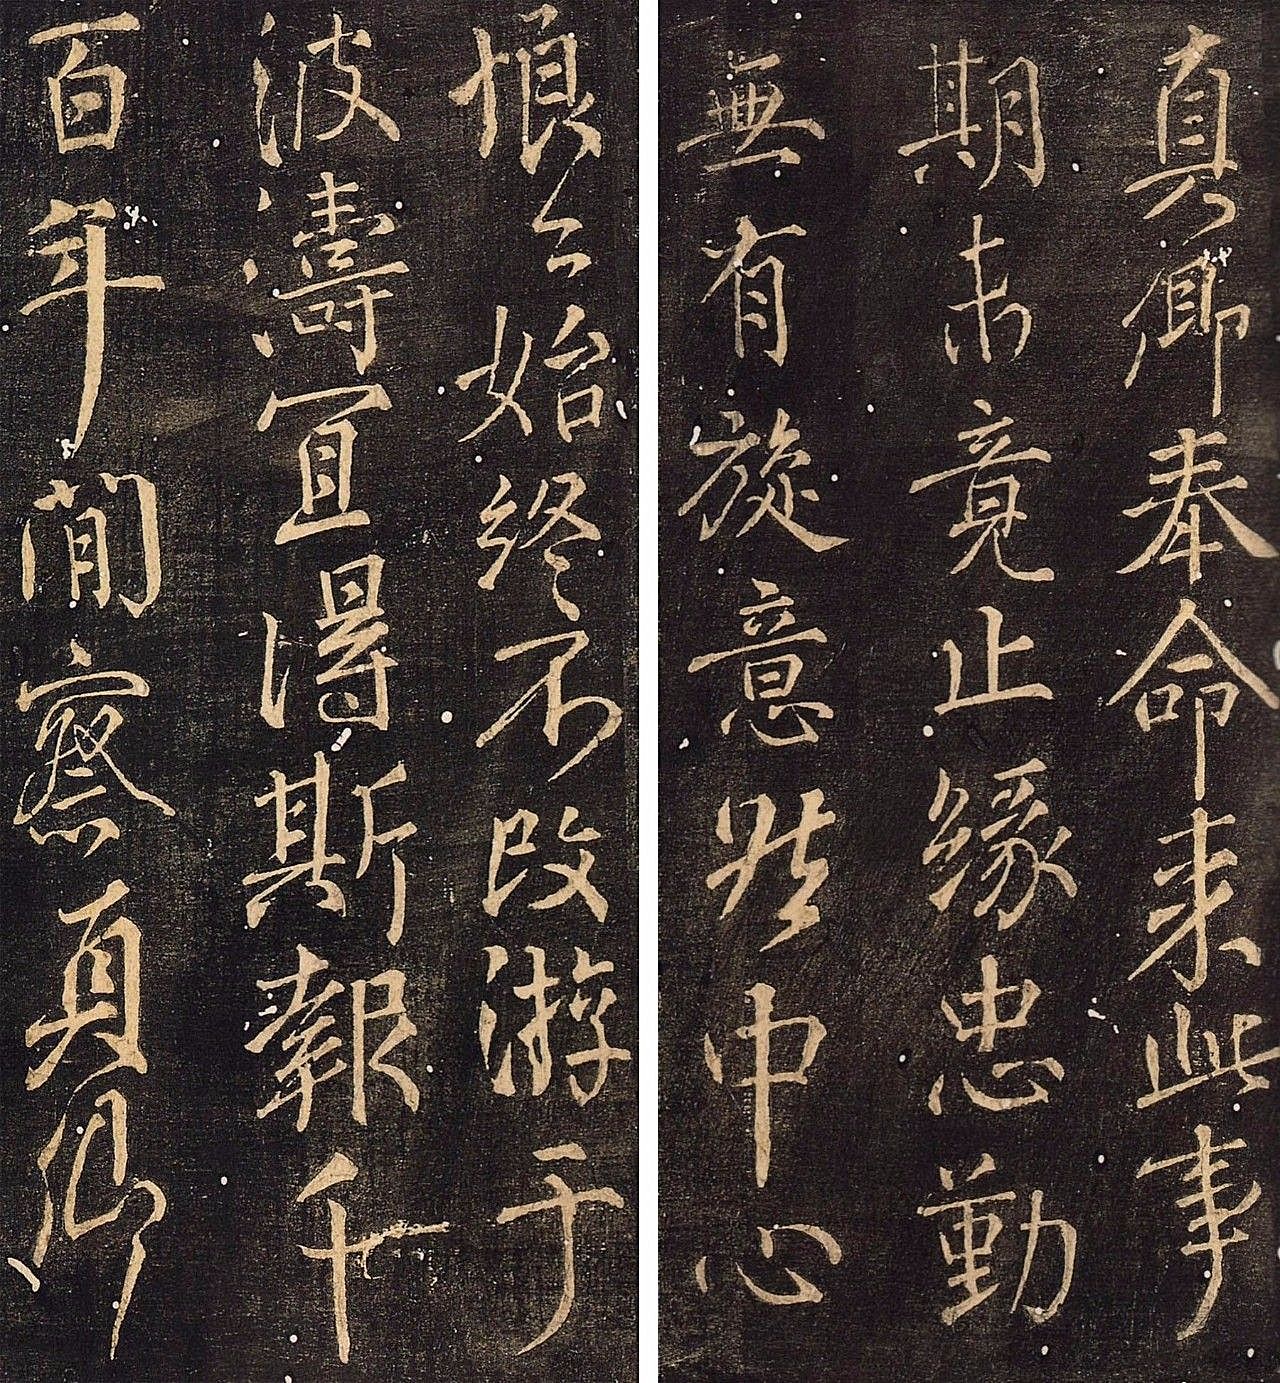 真卿奉命来此事
期未竟止緣忠勤
無有旋意然中心
恨〻始終不改游于
波濤宜得斯報千
百年間察真卿